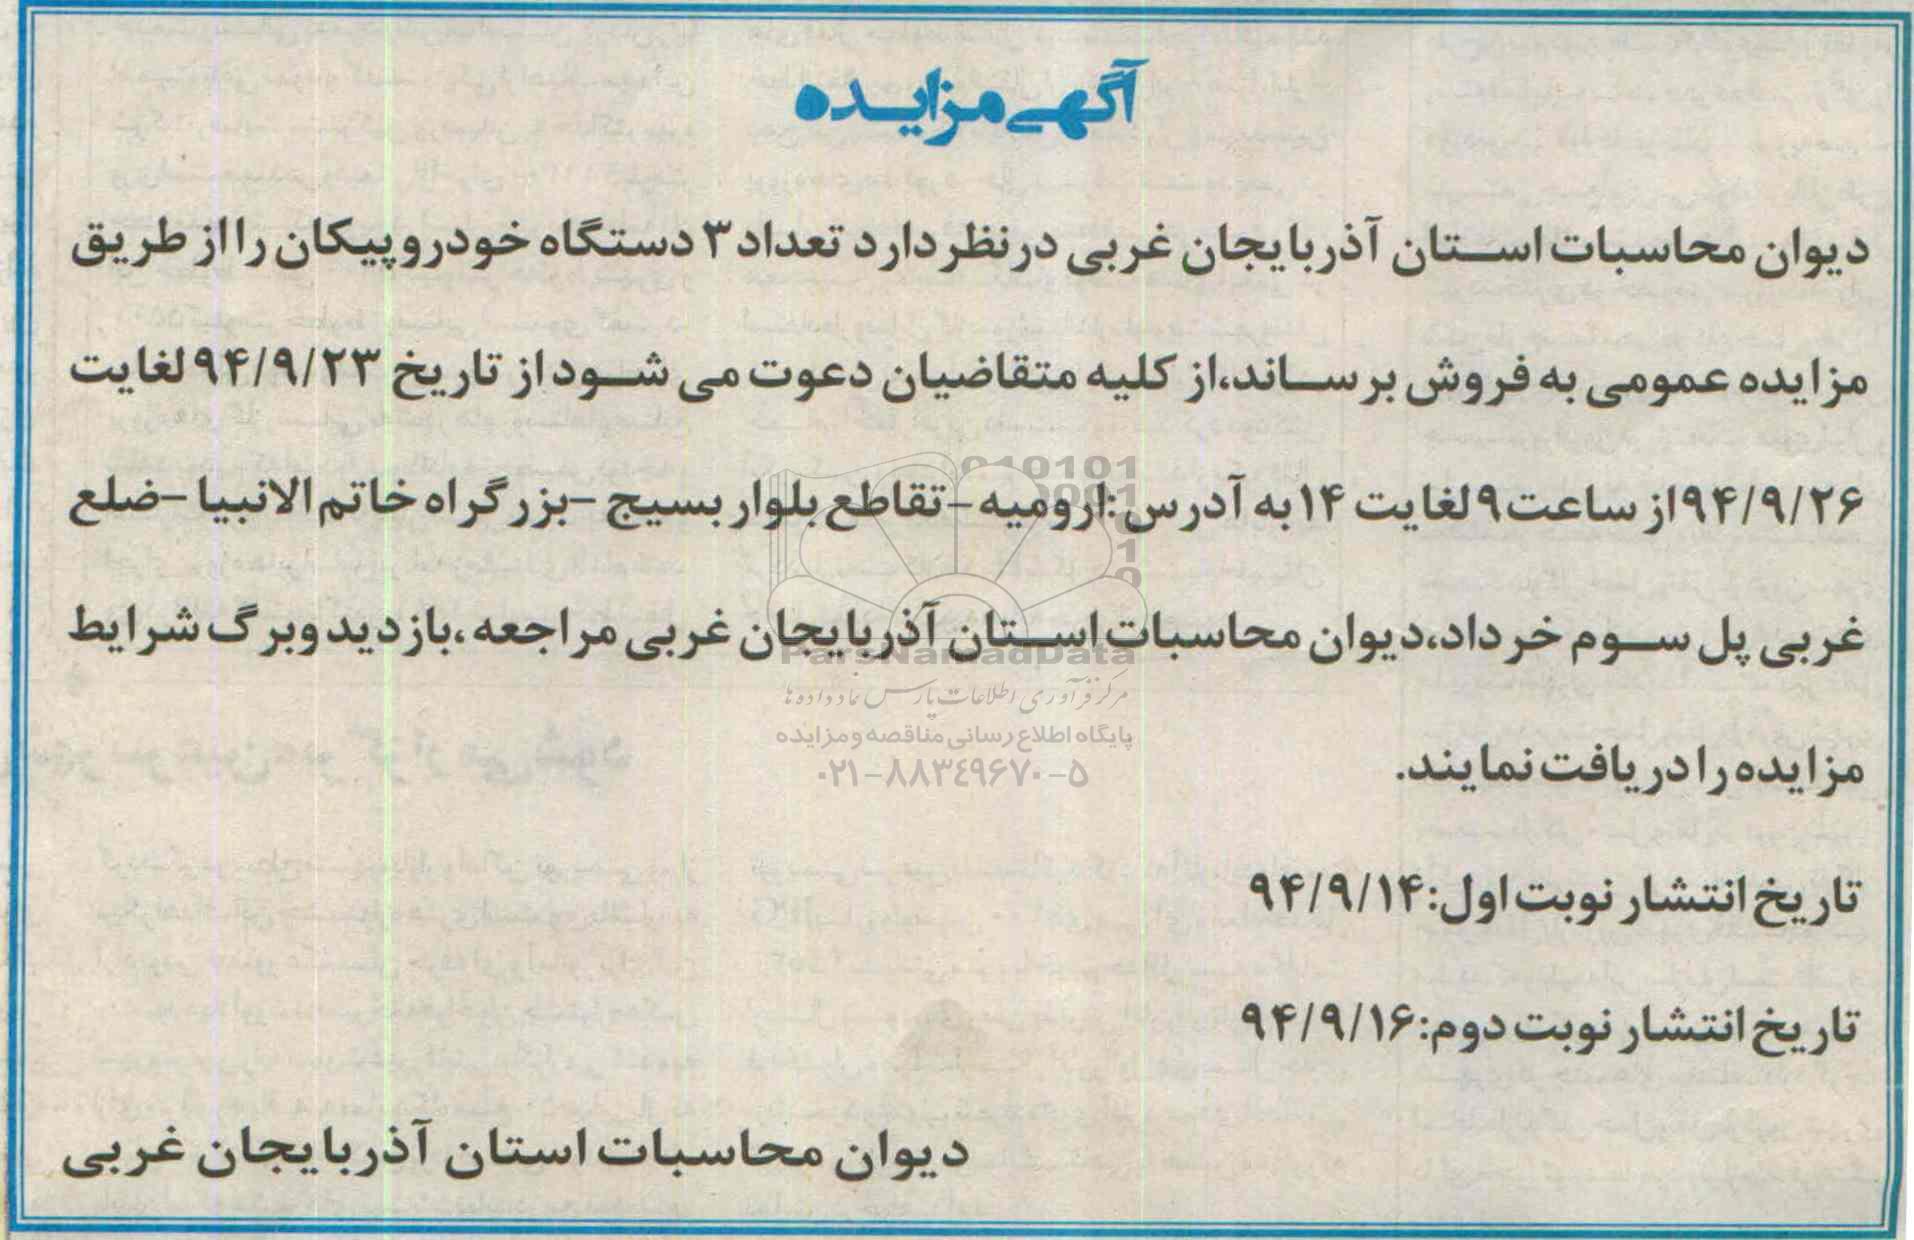 آگهی مزایده
دیوان محاسبات استان آذربایجان غربی درنظر دارد تعداد ۳ دستگاه خودرو پیکان را از طریق
مزایده عمومی به فروش برساند،از کلیه متقاضیان دعوت می شود از تاریخ ۹۴/۹/۲۳ لغایت
۹۴/۹/۲۶ از ساعت ۹ لغایت ۱۴ به آدرس:ارومیه -تقاطع بلوار بسیج -بزرگراه خاتم الانبیا -ضلع
غربی پل سوم خرداد،دیوان محاسبات استان آذربایجان غربی مراجعه ،بازدید وبرگ شرایط
مزایده را دریافت نمایند.
تاریخ انتشار نوبت اول:۹۴/۹/۱۴
تاریخ انتشار نوبت دوم:۹۴/۹/۱۶
دیوان محاسبات استان آذربایجان غربی
ParsNamadData
مرکز فرآوری اطلاعات پارس نماد داده ها
پایگاه اطلاع رسانی مناقصه و مزایده
۰۲۱-۸۸۳۴۹۶۷۰-۵